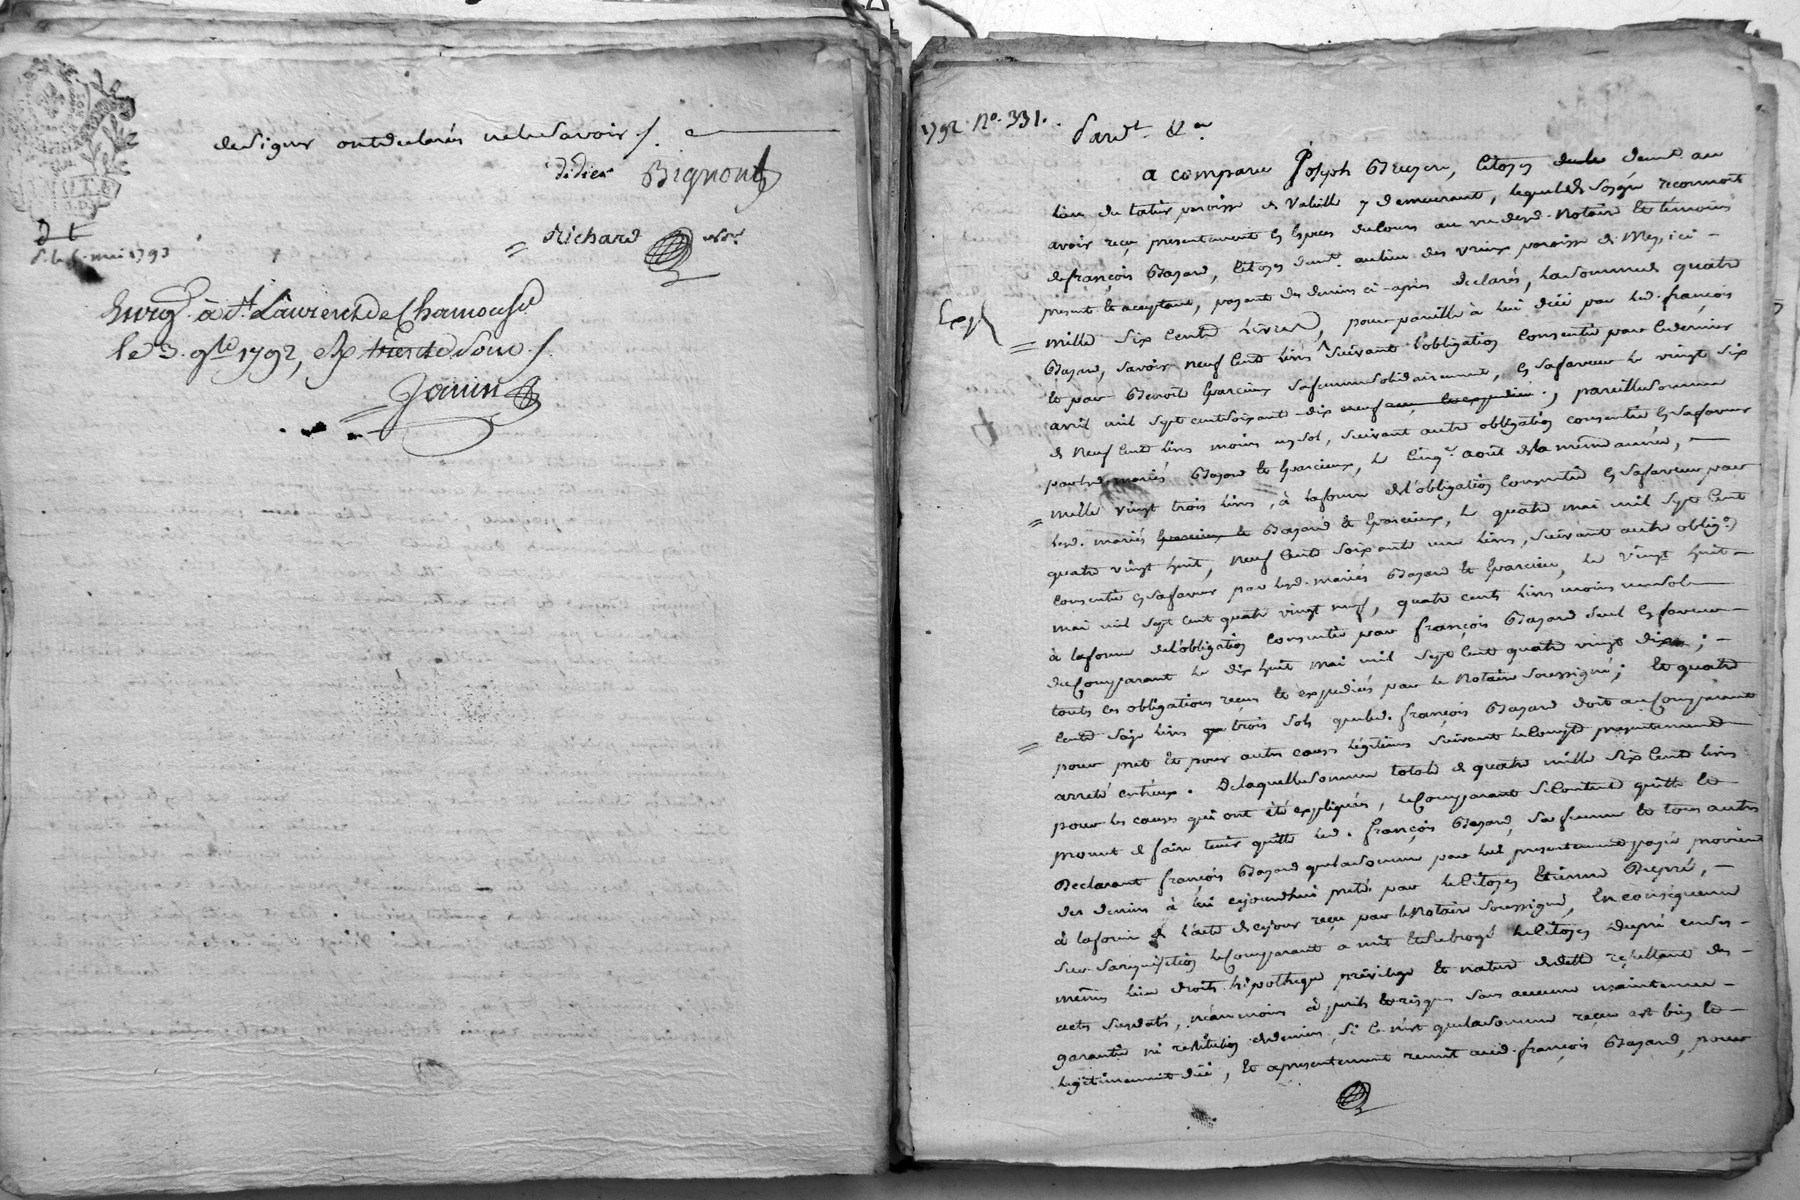 de signer ont declarés ne le savoir ./.
didier Bignon
Richard
6 mai 1793
Enreg. à St. Laurent de Chamousset
le 3. 9bre 1792,
Janin
1792. No. 331.
Pard.t &a
a comparu Joseph citoyen demt. au
lieu du paroisse de y demeurant, lequel de son gré reconnoit
avoir reçu presentement en especes de cours au vu desd. Notaire et temoins
de françois Bazard, citoyen demt. au lieu des vieux paroisse de Meys, ici
present et acceptant, payant des deniers ci-après declarés, la somme de quatre
Exp
mille six cents livres, pour pareille à lui düe par led. françois
Bazard, savoir neuf cents livres suivant l'obligation consentie par ce dernier
et par Benoite Parcieux sa femme solidairement, en sa faveur le vingt six
avril mil sept cent soixant dix neuf ; pareille somme
de neuf cents livres moins un sol, suivant autre obligation consentie en sa faveur
par lesd. mariés Bazard et Parcieux, le cinq août de la même année,
mille vingt trois livres, à la forme de l'obligation consentie en sa faveur par
lesd. mariés Bazard et Parcieux, le quatre mai mil sept cent
quatre vingt huit, neuf cents soixante une livres, suivant autre oblig.on
consentie en sa faveur par lesd. mariés Bazard et Parcieu, le vingt huit
mai mil sept cent quatre vingt neuf, quatre cents livres moins un sol
à la forme de l'obligation consentie par françois Bazard seul en faveur
du Comparant le dix huit mai mil sept cent quatre vingt dix ;
touts ces obligations reçues et expediées par le Notaire soussigné ; et quatre
cents seize livres trois sols que led. françois Bazard doit au Comparant
pour pret et pour autres causes légitimes suivant le compte presentement
arreté entreux. De laquelle somme totale de quatre mille six cents livres
pour les causes qui ont été expliquées, le Comparant se contente quitte et
promet de faire tenir quitte led. françois Bazard, sa femme et tous autres
Declarant françois Bazard que la somme par lui presentement payée provient
des deniers à lui cejourdhui pretés par le citoyen Etienne Dupré,
à la forme de l'acte de ce jour reçu par le Notaire soussigné, en conséquence
sur sa requisition le Comparant a mis et subrogé le citoyen Dupré en ses
mêmes lieu droits hipotheque privilege et nature de dette resultant des
actes susdatés, néanmoins à perils et risques sans aucune maintenue
garantie ni restitution de deniers, si ce n'est que la somme reçue est bien et
légitimement düe, et a presentement remit aud. françois Bazard, pour